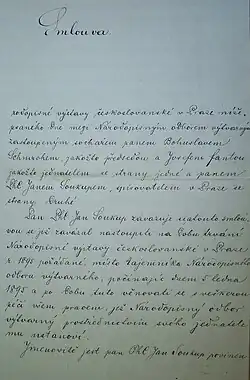 Smlouva
rodopisné výstavy českoslovanské v Praze níže
psaného dne mezi Národopisným odborem výtvarným
zastoupeným sochařem panem Bohuslavem
Schnirchem jakožto předsedou a Josefem Fantou
jakožto jednatelem se strany jedné a panem
PhC Janem Soukupem, spisovatelem v Praze se
strany druhé
Pan PhC Jan Soukup zavazuje se touto smlou-
vou, se již zavázal nastoupiti na dobu trvání
Národopisné výstavy českoslovanské v Praze
r. 1895 pořádané, místo tajemníka Národopisného
odboru výtvarného, počínajíc dnem 5 ledna
1895 a po dobu tuto věnovati se s veškerou
péčí všem pracem, jež Národopisný odbor
výtvarný prostřednictvím svého jednatele
mu ustanoví.
Jmenovitě jest pan PhC Jan Soukup povinen